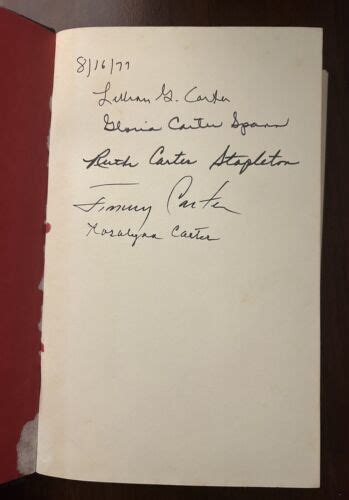 8/16/77
Lillian G. Carter
Gloria Carter Spann
Ruth Carter Stapleton
Jimmy Carter
Rosalynn Carter